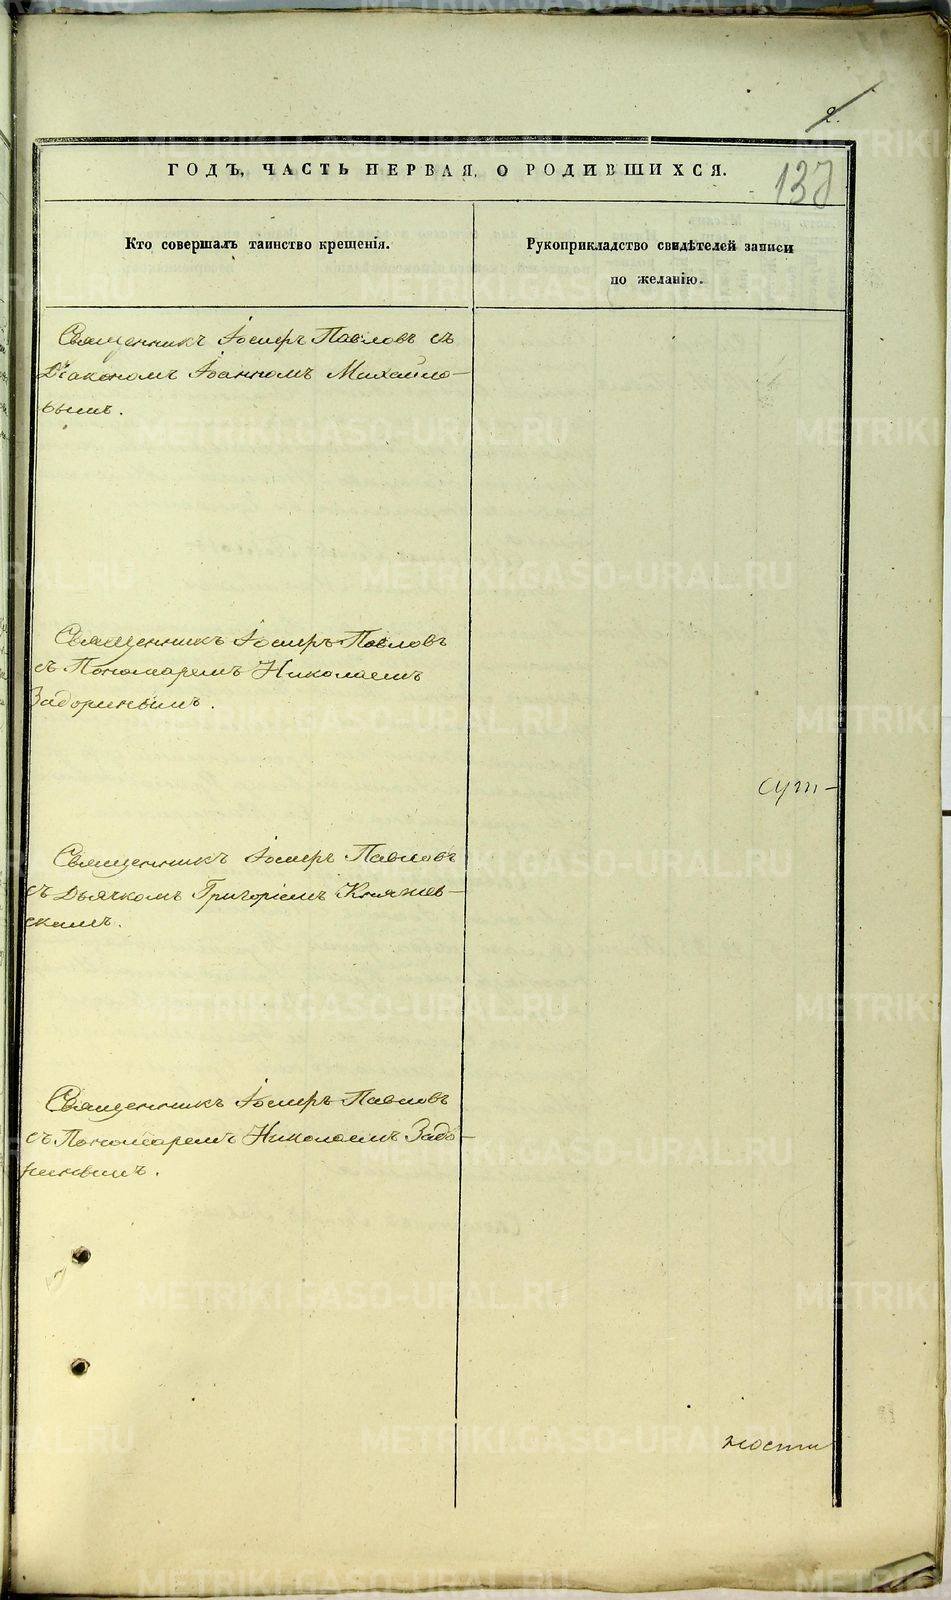 2.
ГОДЪ, ЧАСТЬ ПЕРВАЯ, О РОДИВШИХСЯ.
137
Кто совершалъ таинство крещенія.
Рукоприкладство свидѣтелей записи
по желанію.
Священникъ Іосифъ Павловъ съ
Діакономъ Іоанномъ Михайло-
вымъ.
Священникъ Іосифъ Павловъ
съ Пономаремъ Николаемъ
Задоринымъ.
суп-
Священникъ Іосифъ Павловъ
съ Дьячкомъ Григоріемъ Княжев-
скимъ.
Священникъ Іосифъ Павловъ
съ Пономаремъ Николаемъ Задо-
ринымъ.
ности
METRIKI.GASO-URAL.RU